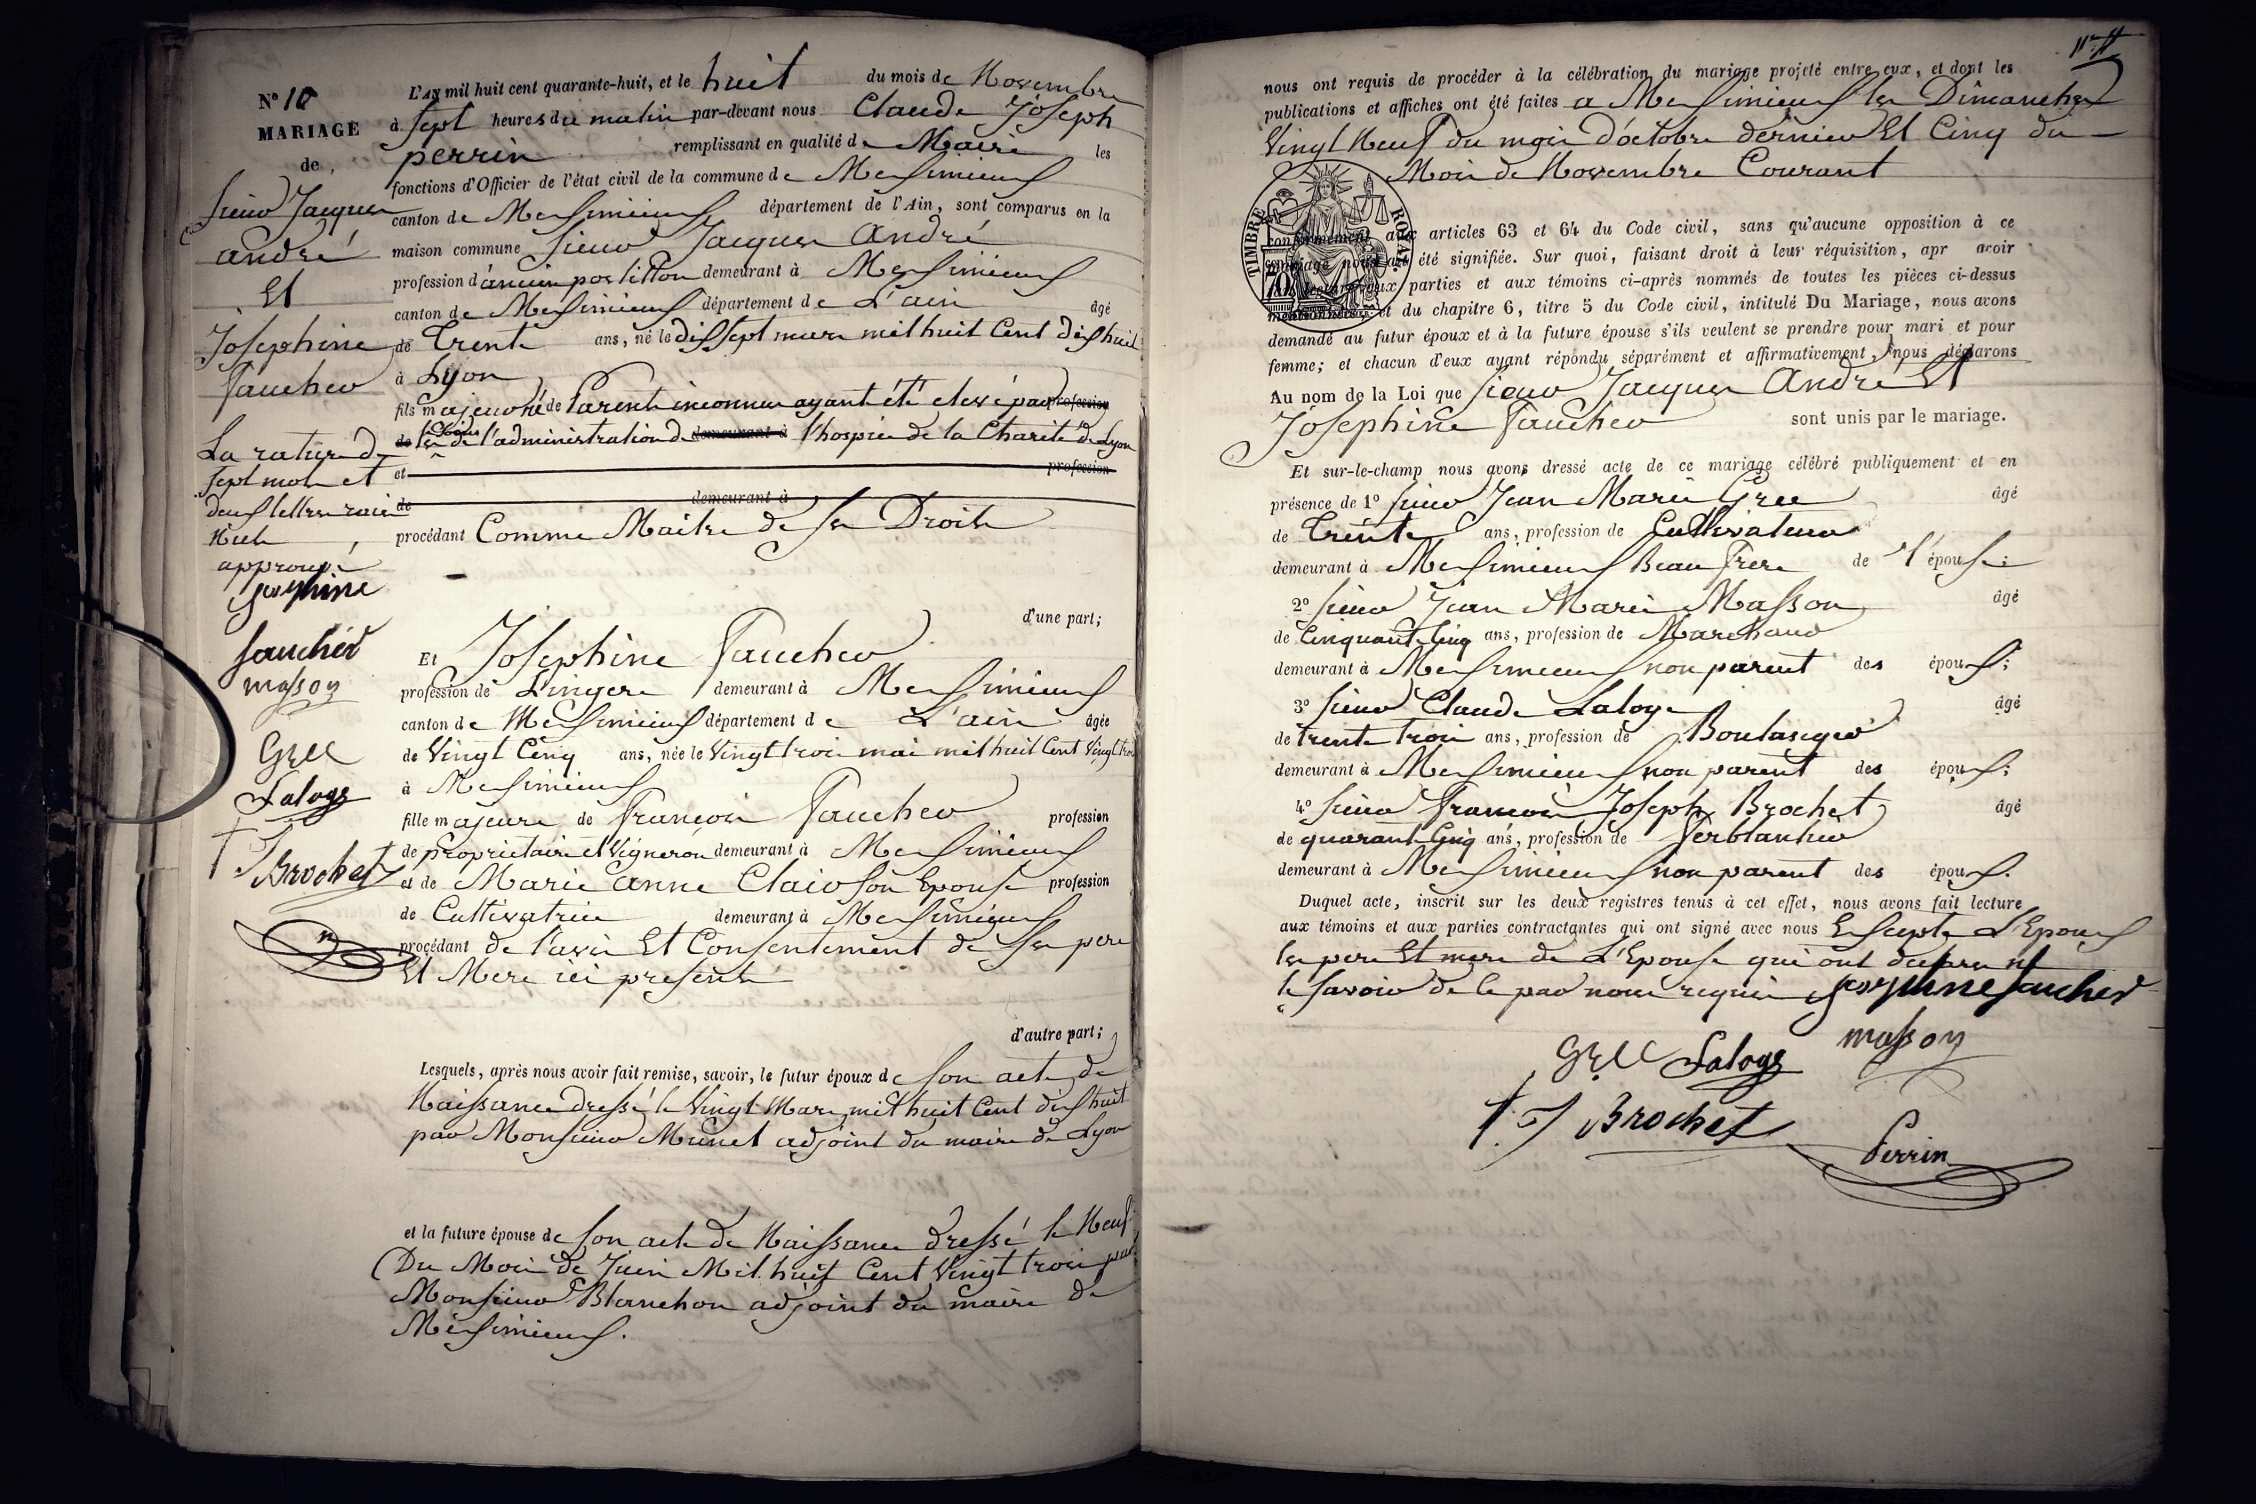 N° 10
MARIAGE
de
Sieur Jacques
andré
Et
Josephine
Faucher
La rature de
sept mots et
deux lettres raiés
nuls
approuvé
josephine
faucher
masson
Grée
Laloge
Brochet
L'AN mil huit cent quarante-huit, et le huit du mois de Novembre
à sept heures du matin par-devant nous Claude Joseph
perrin remplissant en qualité de Maire les
fonctions d'Officier de l'état civil de la commune de Messimieux
canton de Messimieux département de l'Ain, sont comparus en la
maison commune Sieur Jacques andré
profession d'ancien postillon demeurant à Messimieux
canton de Messimieux département de L'ain âgé
de Trente ans, né le dissept mars mil huit Cent dishuit
à Lyon
fils majeur né de Parents inconnus ayant été élevé par profession
de les soins de l'administration de demeurant à l'hospice de la Charité de Lyon
et profession
de demeurant à
procédant Comme Maitre de ses Droits
d'une part;
Et Josephine Faucher
profession de Lingère demeurant à Messimieux
canton de Messimieux département de L'ain âgée
de Vingt Cinq ans, née le Vingt trois mai mil huit Cent Vingt trois
à Messimieux
fille majeure de François Faucher profession
de propriétaire et Vigneron demeurant à Messimieux
et de Marie anne Clair son Epouse profession
de Cultivatrice demeurant à Messimieux
procédant de l'avis Et Consentement de ses pere
Et Mere ici présents
d'autre part;
Lesquels, après nous avoir fait remise, savoir, le futur époux de son acte de
Naissance dressé le Vingt Mars mil huit Cent dishuit
par Monsieur Munet adjoint du maire de Lyon
et la future épouse de son acte de Naissance dressé le Neuf
Du Mois de Juin Mil huit Cent Vingt trois par
Monsieur Blanchon adjoint du maire de
Messimieux.
nous ont requis de procéder à la célébration du mariage projeté entre eux, et dont les
publications et affiches ont été faites a Messimieux les Dimanches
Vingt Neuf du mois d'octobre dernier Et Cinq du
Mois de Novembre Courant
TIMBRE ROYAL
70
conformément aux articles 63 et 64 du Code civil, sans qu'aucune opposition à ce
mariage nous ait été signifiée. Sur quoi, faisant droit à leur réquisition, apr avoir
aux parties et aux témoins ci-après nommés de toutes les pièces ci-dessus
mentionnées, et du chapitre 6, titre 5 du Code civil, intitulé Du Mariage, nous avons
demandé au futur époux et à la future épouse s'ils veulent se prendre pour mari et pour
femme; et chacun d'eux ayant répondu séparément et affirmativement, nous déclarons
Au nom de la Loi que Sieur Jacques André Et
Josephine Faucher sont unis par le mariage.
Et sur-le-champ nous avons dressé acte de ce mariage célébré publiquement et en
présence de 1° Sieur Jean Marie Grée âgé
de Trente ans, profession de Cultivateur
demeurant à Messimieux Beau frere de l'épouse;
2° Sieur Jean Marie Masson âgé
de Cinquante Cinq ans, profession de Marchand
demeurant à Messimieux non parent des époux;
3° Sieur Claude Laloge âgé
de trente trois ans, profession de Boulanger
demeurant à Messimieux non parent des époux;
4° Sieur François Joseph Brochet âgé
de quarante Cinq ans, profession de ferblantier
demeurant à Messimieux non parent des époux.
Duquel acte, inscrit sur les deux registres tenus à cet effet, nous avons fait lecture
aux témoins et aux parties contractantes qui ont signé avec nous Excepté L'Epoux
les pere Et mere de L'Epouse qui ont declaré ne
le savoir de ce par nous requis josephine faucher
Grée Laloge masson
Brochet
Perrin